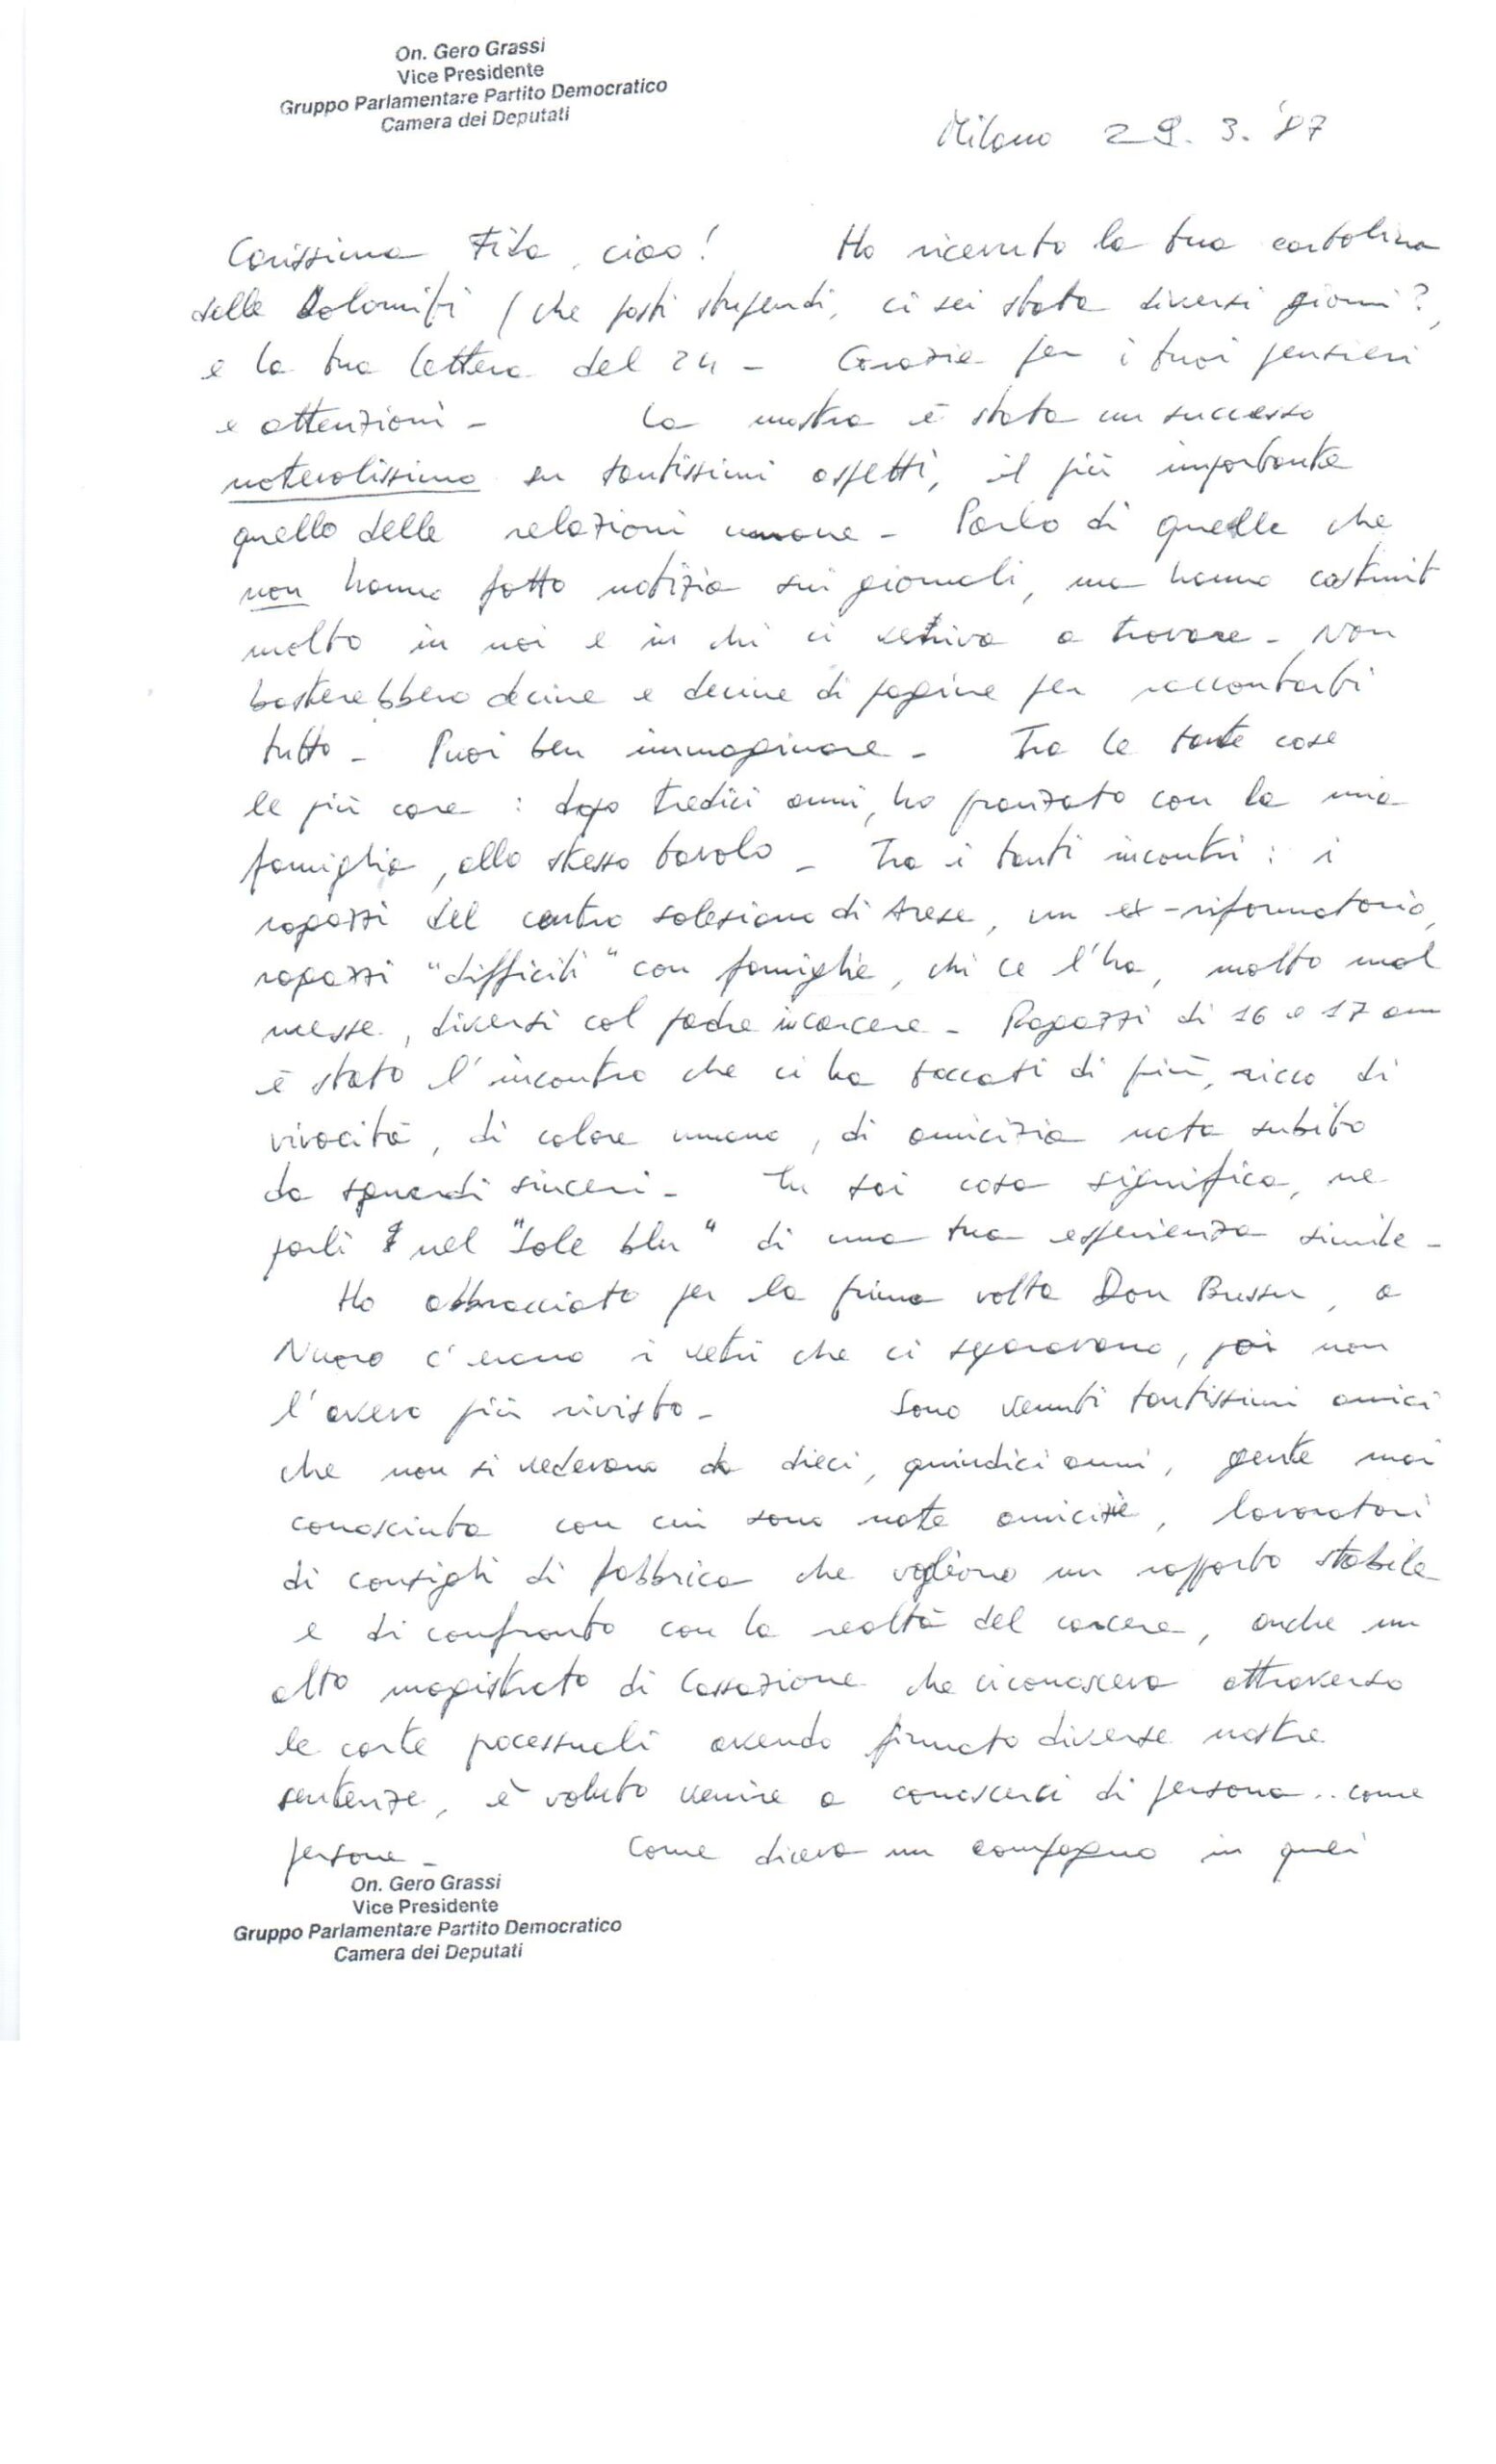 On. Gero Grassi
Vice Presidente
Gruppo Parlamentare Partito Democratico
Camera dei Deputati
Milano 29. 3. '87
Carissima Fida, ciao! Ho ricevuto la tua cartolina
delle Dolomiti (che posti stupendi, ci sei stata diversi giorni?,
e la tua lettera del 24 - Grazie per i tuoi pensieri
e attenzioni - La mostra è stata un successo
notevolissimo su tantissimi aspetti, il più importante
quello delle relazioni umane - Parlo di quelle che
non hanno fatto notizia sui giornali, ma hanno costruit
molto in noi e in chi ci veniva a trovare - Non
basterebbero decine e decine di pagine per raccontarti
tutto - Puoi ben immaginare - Tra le tante cose
le più care : dopo tredici anni, ho pranzato con la mia
famiglia, allo stesso tavolo - Tra i tanti incontri : i
ragazzi del centro salesiano di Arese, un ex-riformatorio,
ragazzi "difficili" con famiglie, chi ce l'ha, molto mal
messe, diversi col padre in carcere - Ragazzi di 16 e 17 ann
è stato l'incontro che ci ha toccati di più, ricco di
vivacità, di calore umano, di amicizia nata subito
da sguardi sinceri - Tu sai cosa significa, ne
parli nel "Sole blu" di una tua esperienza simile -
Ho abbracciato per la prima volta Don Bussu, a
Nuoro c'erano i vetri che ci separavano, poi non
l'avevo più rivisto - Sono venuti tantissimi amici
che non si vedevano da dieci, quindici anni, gente mai
conosciuta con cui sono nate amicizie, lavoratori
di consigli di fabbrica che vogliono un rapporto stabile
e di confronto con la realtà del carcere, anche un
alto magistrato di Cassazione che ci conosceva attraverso
le carte pocessuali avendo firmato diverse nostre
sentenze, è voluto venire a conoscerci di persona.. come
persone - Come diceva un compagno in quei
On. Gero Grassi
Vice Presidente
Gruppo Parlamentare Partito Democratico
Camera dei Deputati